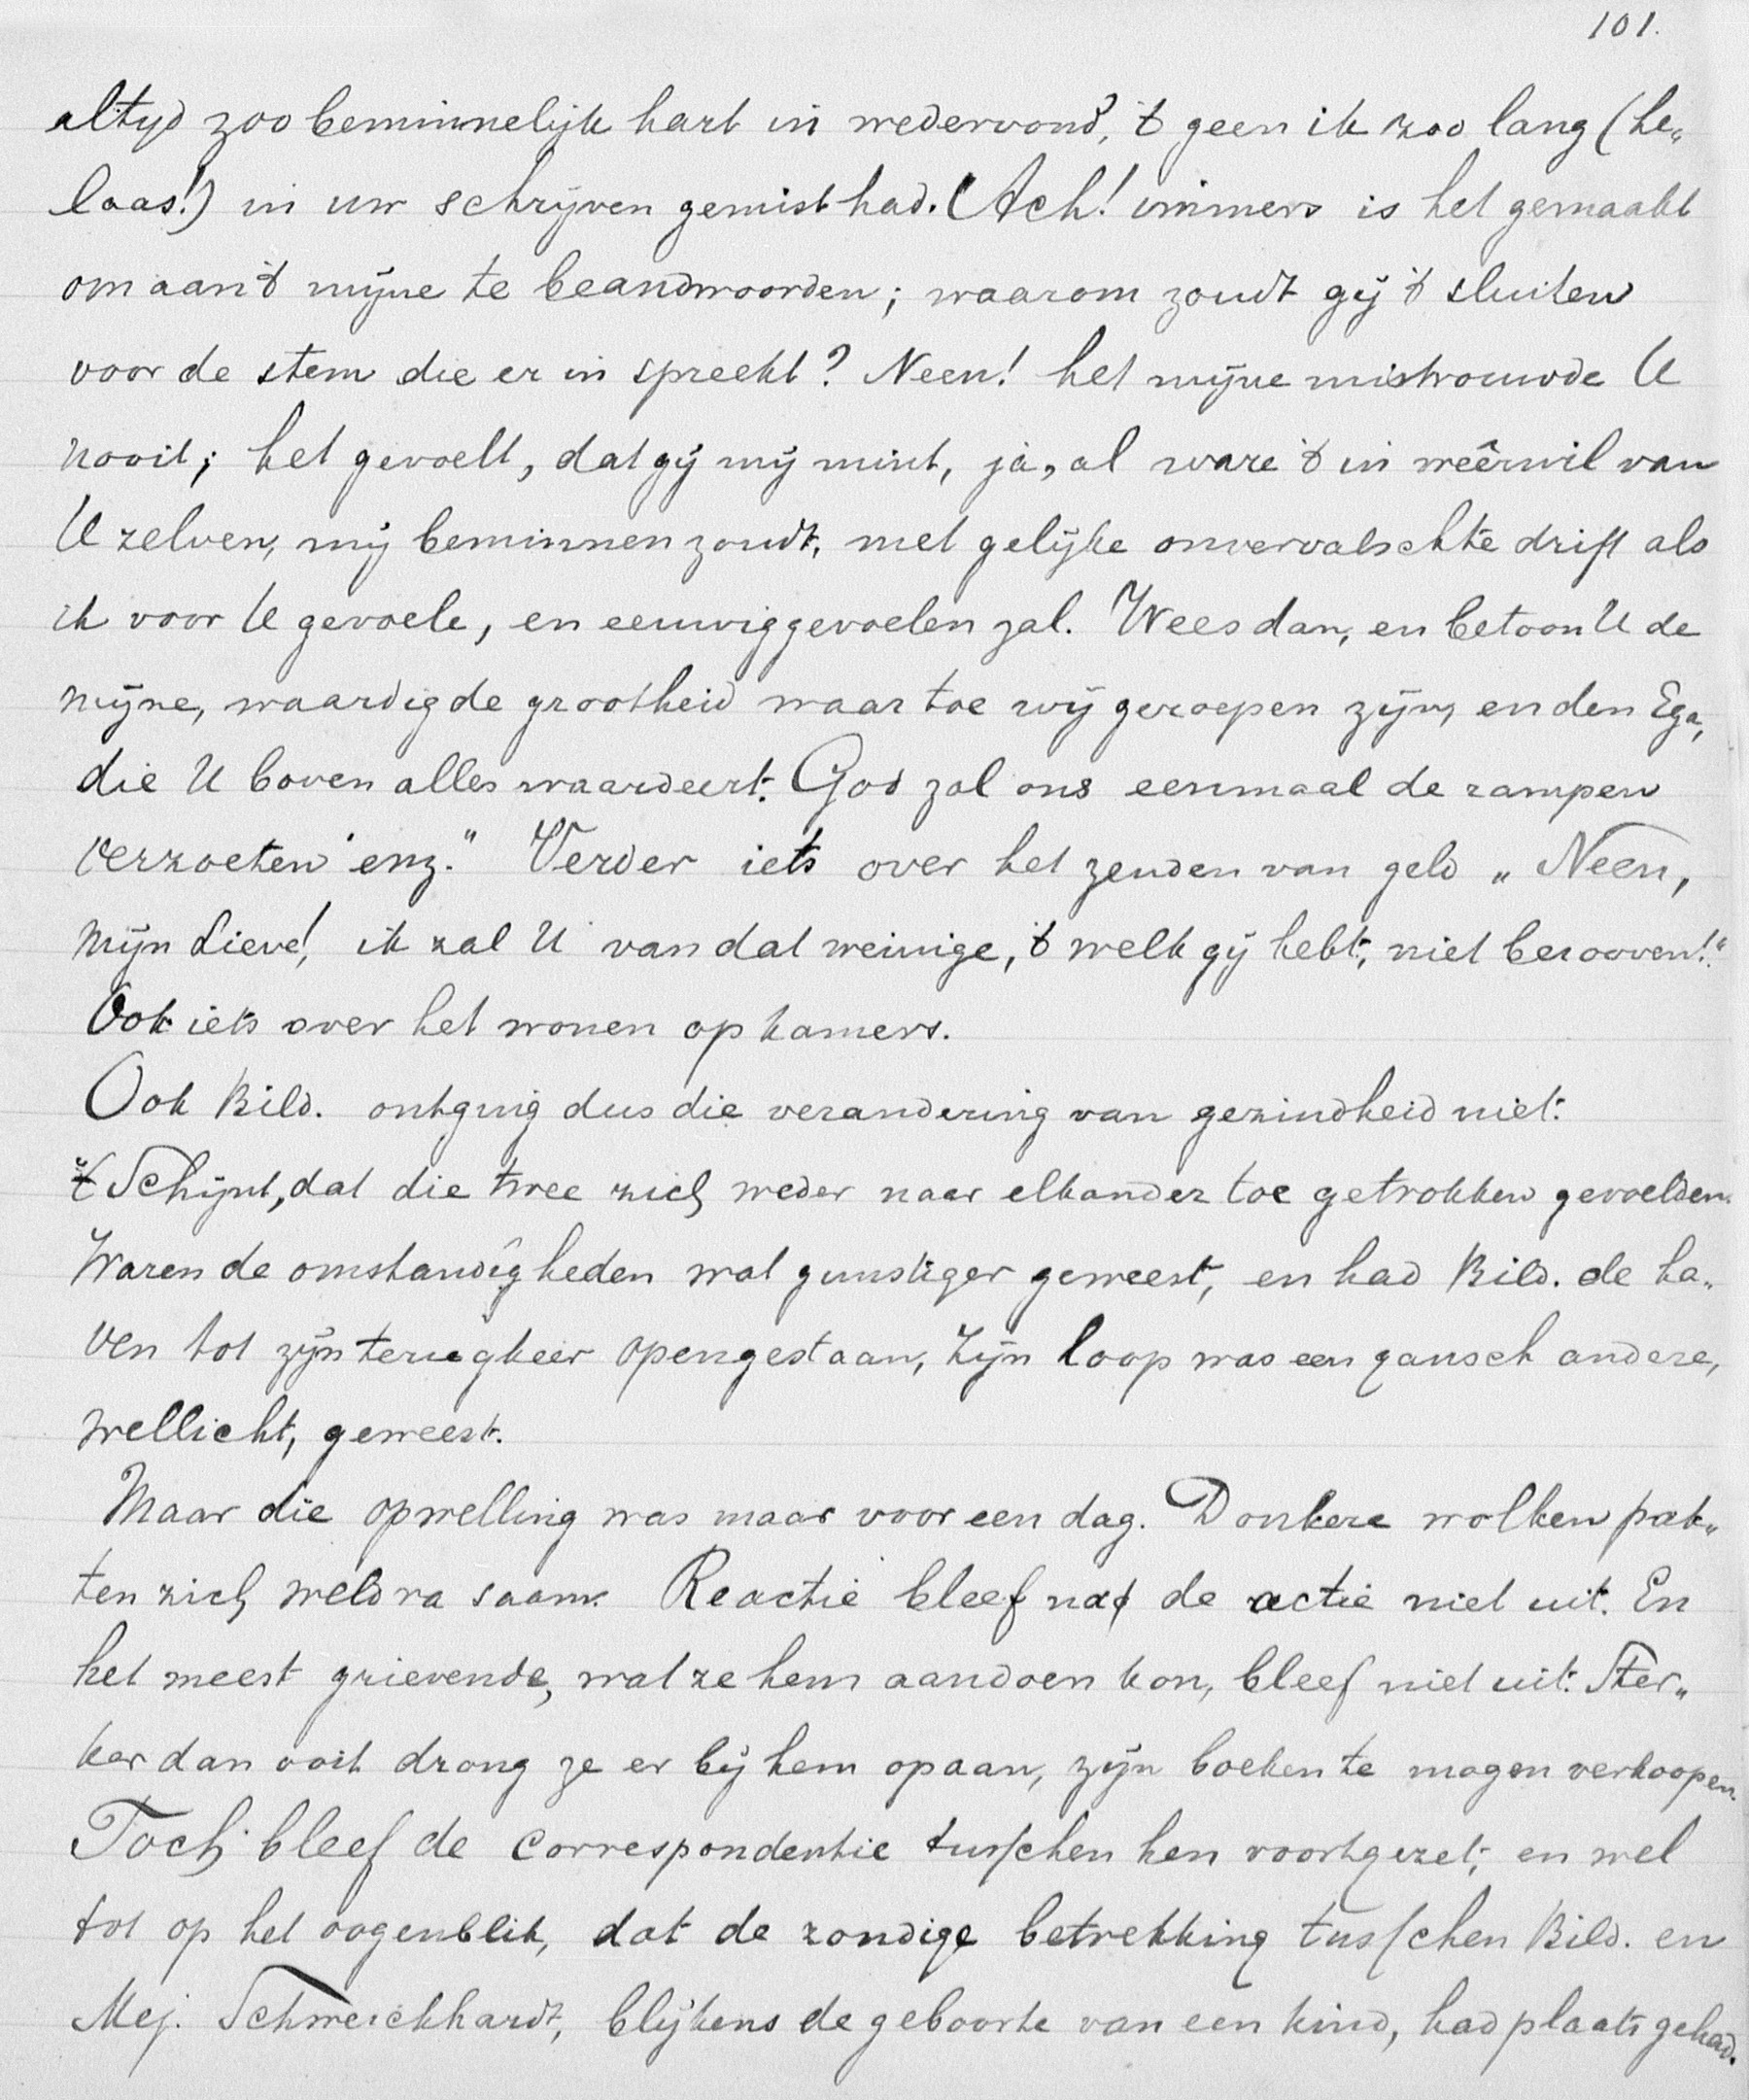 101.
altyd zoo beminnelijk hart in wedervond, 't geen ik zoo lang (he„
laas!) in uw schrijven gemist had. (Ach! immers is het gemaakt
om aan 't mijne te beandwoorden; waarom zoudt gij 't sluiten
voor de stem die er in spreekt? Neen! het mijne mistrouwde U
nooit; het gevoelt, dat gij mij mint, ja, al ware 't in weêrwil van
U zelven, mij beminnen zoudt, met gelijke onvervalschte drift als
ik voor U gevoele, en eeuwig gevoelen zal. Wees dan, en betoon U de
mijne, waardig de grootheid waar toe wij geroepen zijn, en den Ega,
die U boven alles waardeert. God zal ons eenmaal de rampen
verzoeten enz." Verder iets over het zenden van geld „Neen,
mijn Lieve! ik zal U van dat weinige, 't welk gij hebt, niet berooven!."
Ook iets over het wonen op kamers.
Ook Bild. ontging dus die verandering van gezindheid niet.
't Schijnt, dat die twee zich weder naar elkander toe getrokken gevoelden.
Waren de omstandigheden wat gunstiger geweest, en had Bild. de ha„
ven tot zijn terugkeer opengestaan, zijn loop was een gansch andere,
wellicht, geweest.
Maar die opwelling was maar voor een dag. Donkere wolken pak„
ten zich weldra saam. Reactie bleef na de actie niet uit. En
het meest grievende, wat ze hem aandoen kon, bleef niet uit. Ster„
ker dan ooit drong ze er bij hem op aan, zijn boeken te mogen verkoopen.
Toch bleef de correspondentie tusschen hen voortgezet, en wel
tot op het oogenblik, dat de zondige betrekking tusschen Bild. en
Mej. Schweickhardt, blijkens de geboorte van een kind, had plaats gehad.